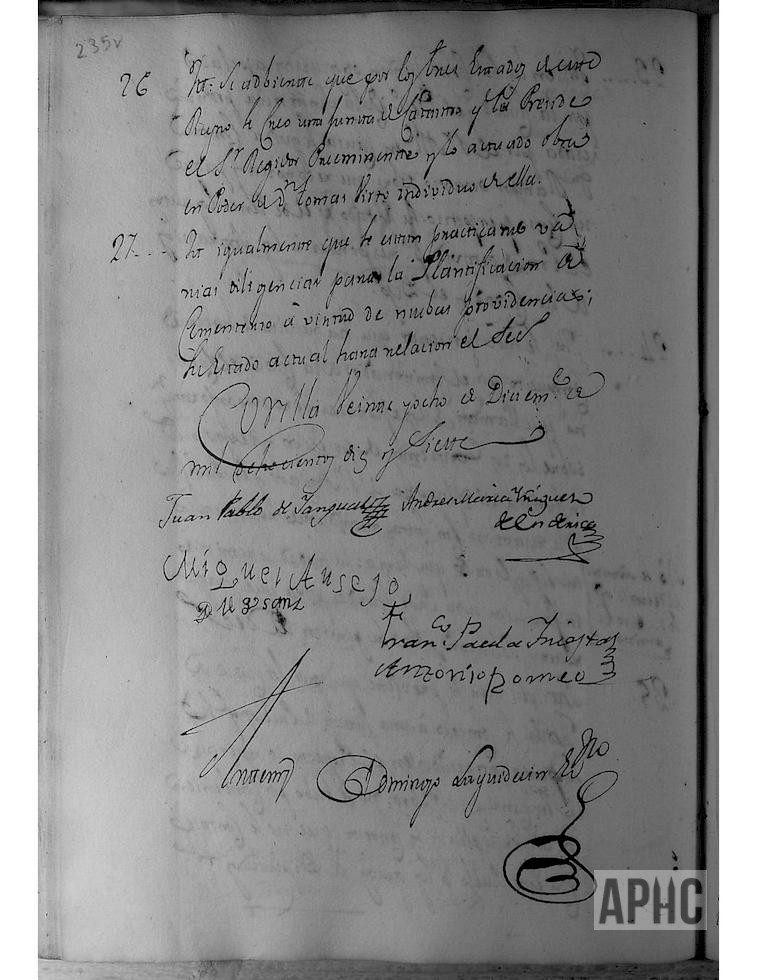 235v
26 Itt. Se adbierte que por los tres Estados de este
Reyno se Creo una Junta de Catastro y la Preside
el Sr. Regidor Preeminente y lo actuado obra
en Poder de Dn. Tomas Pirto individuo de ella.
27.. Itt igualmente que se estan practicando va
rias diligencias para la Plantificacion de
Cementerio á virtud de nuebas providencias;
su Estado actual hara relacion el Sec.
Corella Veinte y ocho de Diciem.e de
mil ochocientos diez y Siete
Juan Pablo de Andres Maria Yñiguez
Miguel Ausejo
Diego Sanz
Fran.co Paula Iniestas
Antonio Romeo
Antemi Domingo Laquidain Es.no
APHC